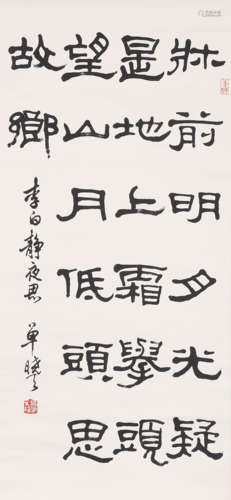 牀前明月光疑
是地上霜舉頭
望山月低頭思
故鄉
李白靜夜思 单晓天